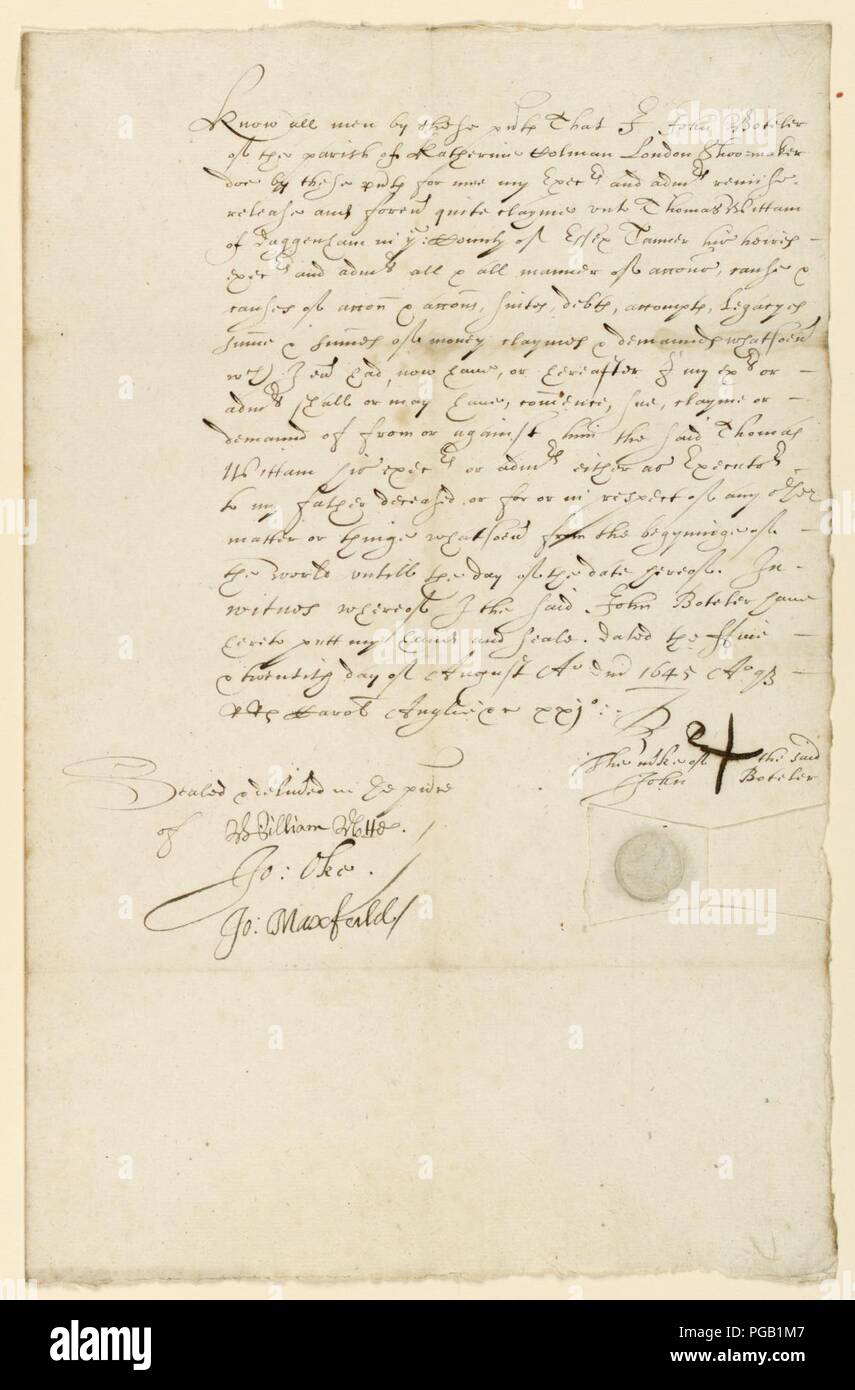 Know all men by these pnts That I John Boteler
of the parish of Katherine Colman London Shoo=maker
doe by these pnts for mee my Execrs and admrs remise
release and forevr quite clayme unto Thomas Wittam
of Daggenham in ye County of Essex Tanner his heires
execrs and admrs all & all manner of accons, cause &
causes of accon & accons, suites, debts, accompts, Legacyes
summe & summes of money claymes & demaunds whatsoevr
wch I evr had, now have, or hereafter I my exrs or
admrs shall or may have, comence, sue, clayme or
demaund of from or against him the said Thomas
Wittam his execrs or admrs either as Executor
to my father deceased or for or in respect of any other
matter or thinge whatsoevr from the begynninge of
the world untill the day of the date hereof. In
witnes whereof I the said John Boteler have
hereto putt my hand and seale. dated the ffive
& twentith day of August Ao Dni 1645 Ao
Caroli Anglie &c xxjo:
The mke of the said
John Boteler
Sealed & delivred in the psence
of William
Jo: Oke.
Jo: Maxfeild
alamy
a
PGB1M7
www.alamy.com